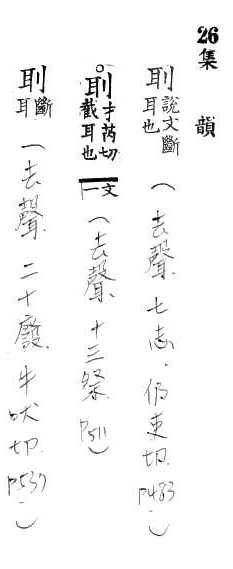 26集韻
刵說文斷耳也（去聲．七志．仍吏切．P483．）
○刵才芮切截耳也文一（去聲．十三祭P511）
刵斷耳（去聲．二十廢．牛吠切．P537．）